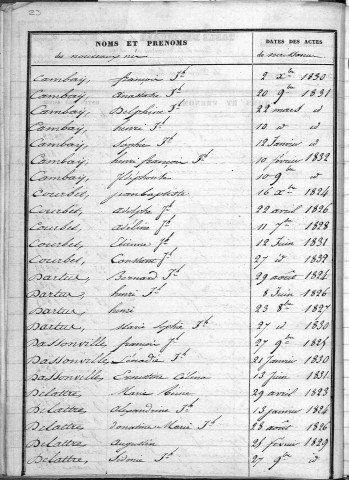 NOMS ET PRENOMS DATES DES ACTES
de nouveaux nés de naissance
Cambay, françois Jh 2 Xbre 1830
Cambay, Anastasie Jh 20 9bre 1831
Cambay, Delphine Jh 22 mars id
Cambay, henri Jh 10 id id
Cambay, Sophie Jh 12 Janvier id
Cambay, henri françois Jh 10 février 1832
Cambay, 10 9bre id
Courbes, jean baptiste 16 Xbre 1824
Courbes, Adolphe Jh 22 avril 1826
Courbes, Adéline Jh 11 7bre 1828
Courbes, Etienne Jh 12 Juin 1831
Courbes, Constant Jh 27 id 1832
Dartus, Bernard Jh 29 août 1824
Dartus, henri Jh 8 Juin 1826
Dartus, henri 23 8bre 1827
Dartus, Marie Sophie Jh 27 id 1830
Dassonville, françois Jh 27 9bre 1825
Dassonville, Léocadie Jh 21 Janvier 1830
Dassonville, Ernestine Célina 13 Juin 1831
Delattre, Marie Anne 29 avril 1823
Delattre, Alexandrine Jh 13 janvier 1824
Delattre, Domatine Marie Jh 28 août 1826
Delattre, Augustin 25 février 1829
Delattre, Sidonie Jh 27 9bre id